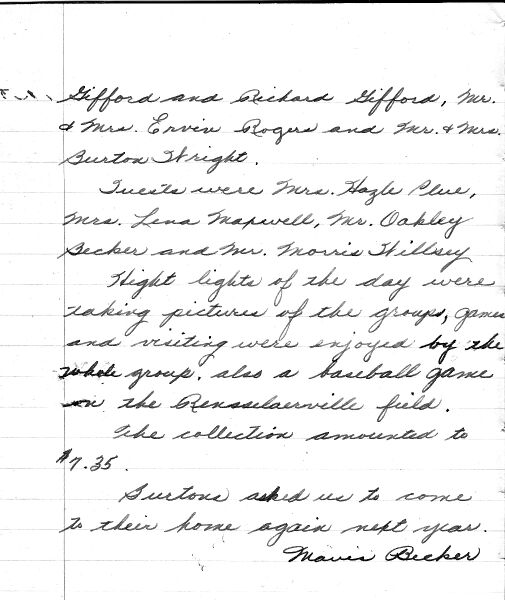 Gifford and Richard Gifford, Mr.
& Mrs. Ervin Rogers and Mr. & Mrs.
Burton Wright.
Guests were Mrs. Hazle Clue,
Mrs. Lena Maxwell, Mr. Oakley
Becker and Mr. Morris Willsey
Hight lights of the day were
taking pictures of the groups, games
and visiting were enjoyed by the
whole group. also a baseball game
on the Rensselaerville field.
The collection amounted to
$7.35.
Burtons asked us to come
to their home again next year.
Mavis Becker